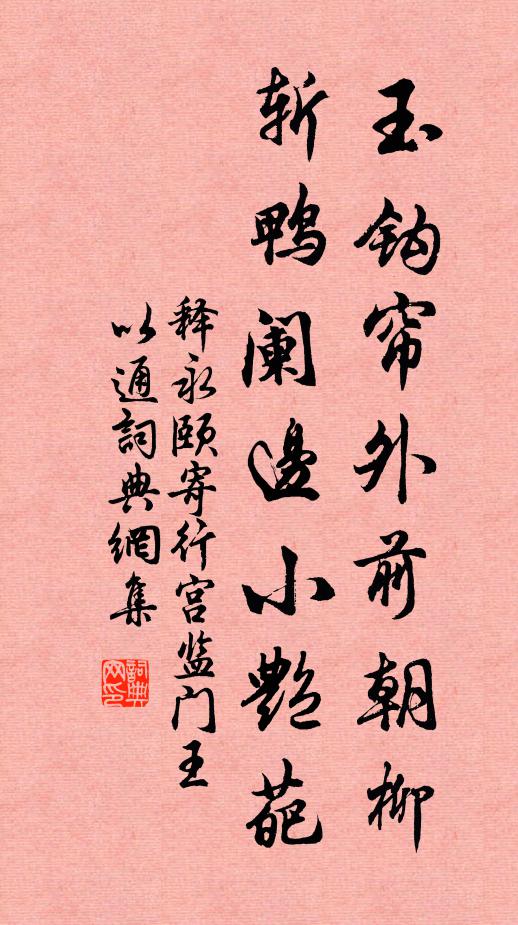 玉钩帘外前朝柳
斩鸭阑邊小艷葩
释永颐寄行宫监门王
以通詞典網集
詞典
网印